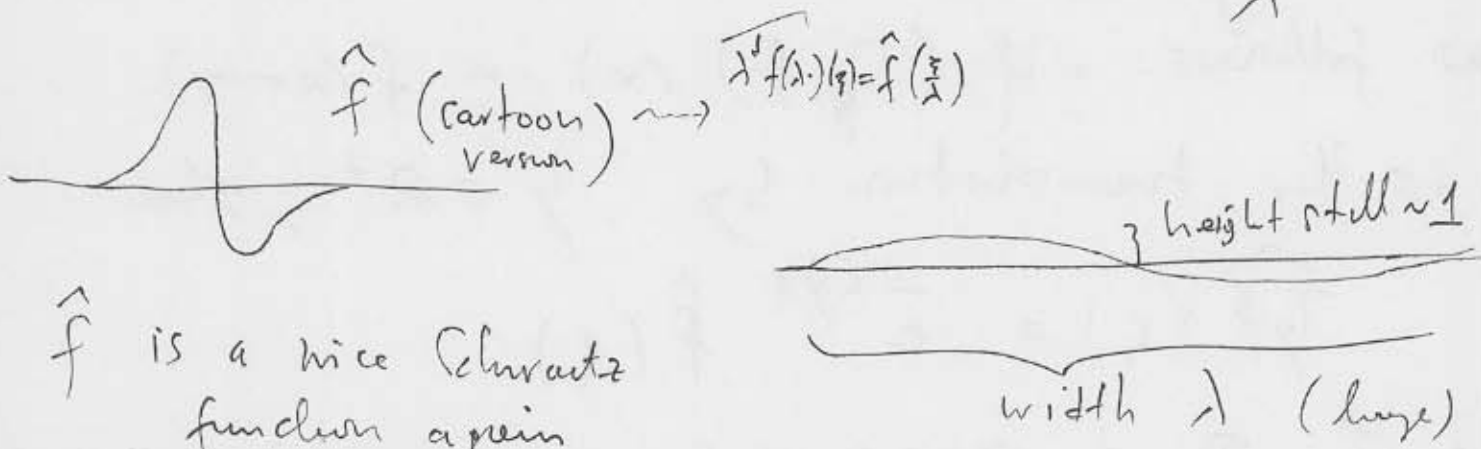 f̂ (cartoon version) ⇝ \widehat{λ^d f(λ·)}(ξ) = f̂(ξ/λ)
height still ~ 1
f̂ is a nice Schwartz
function again
width λ (huge)